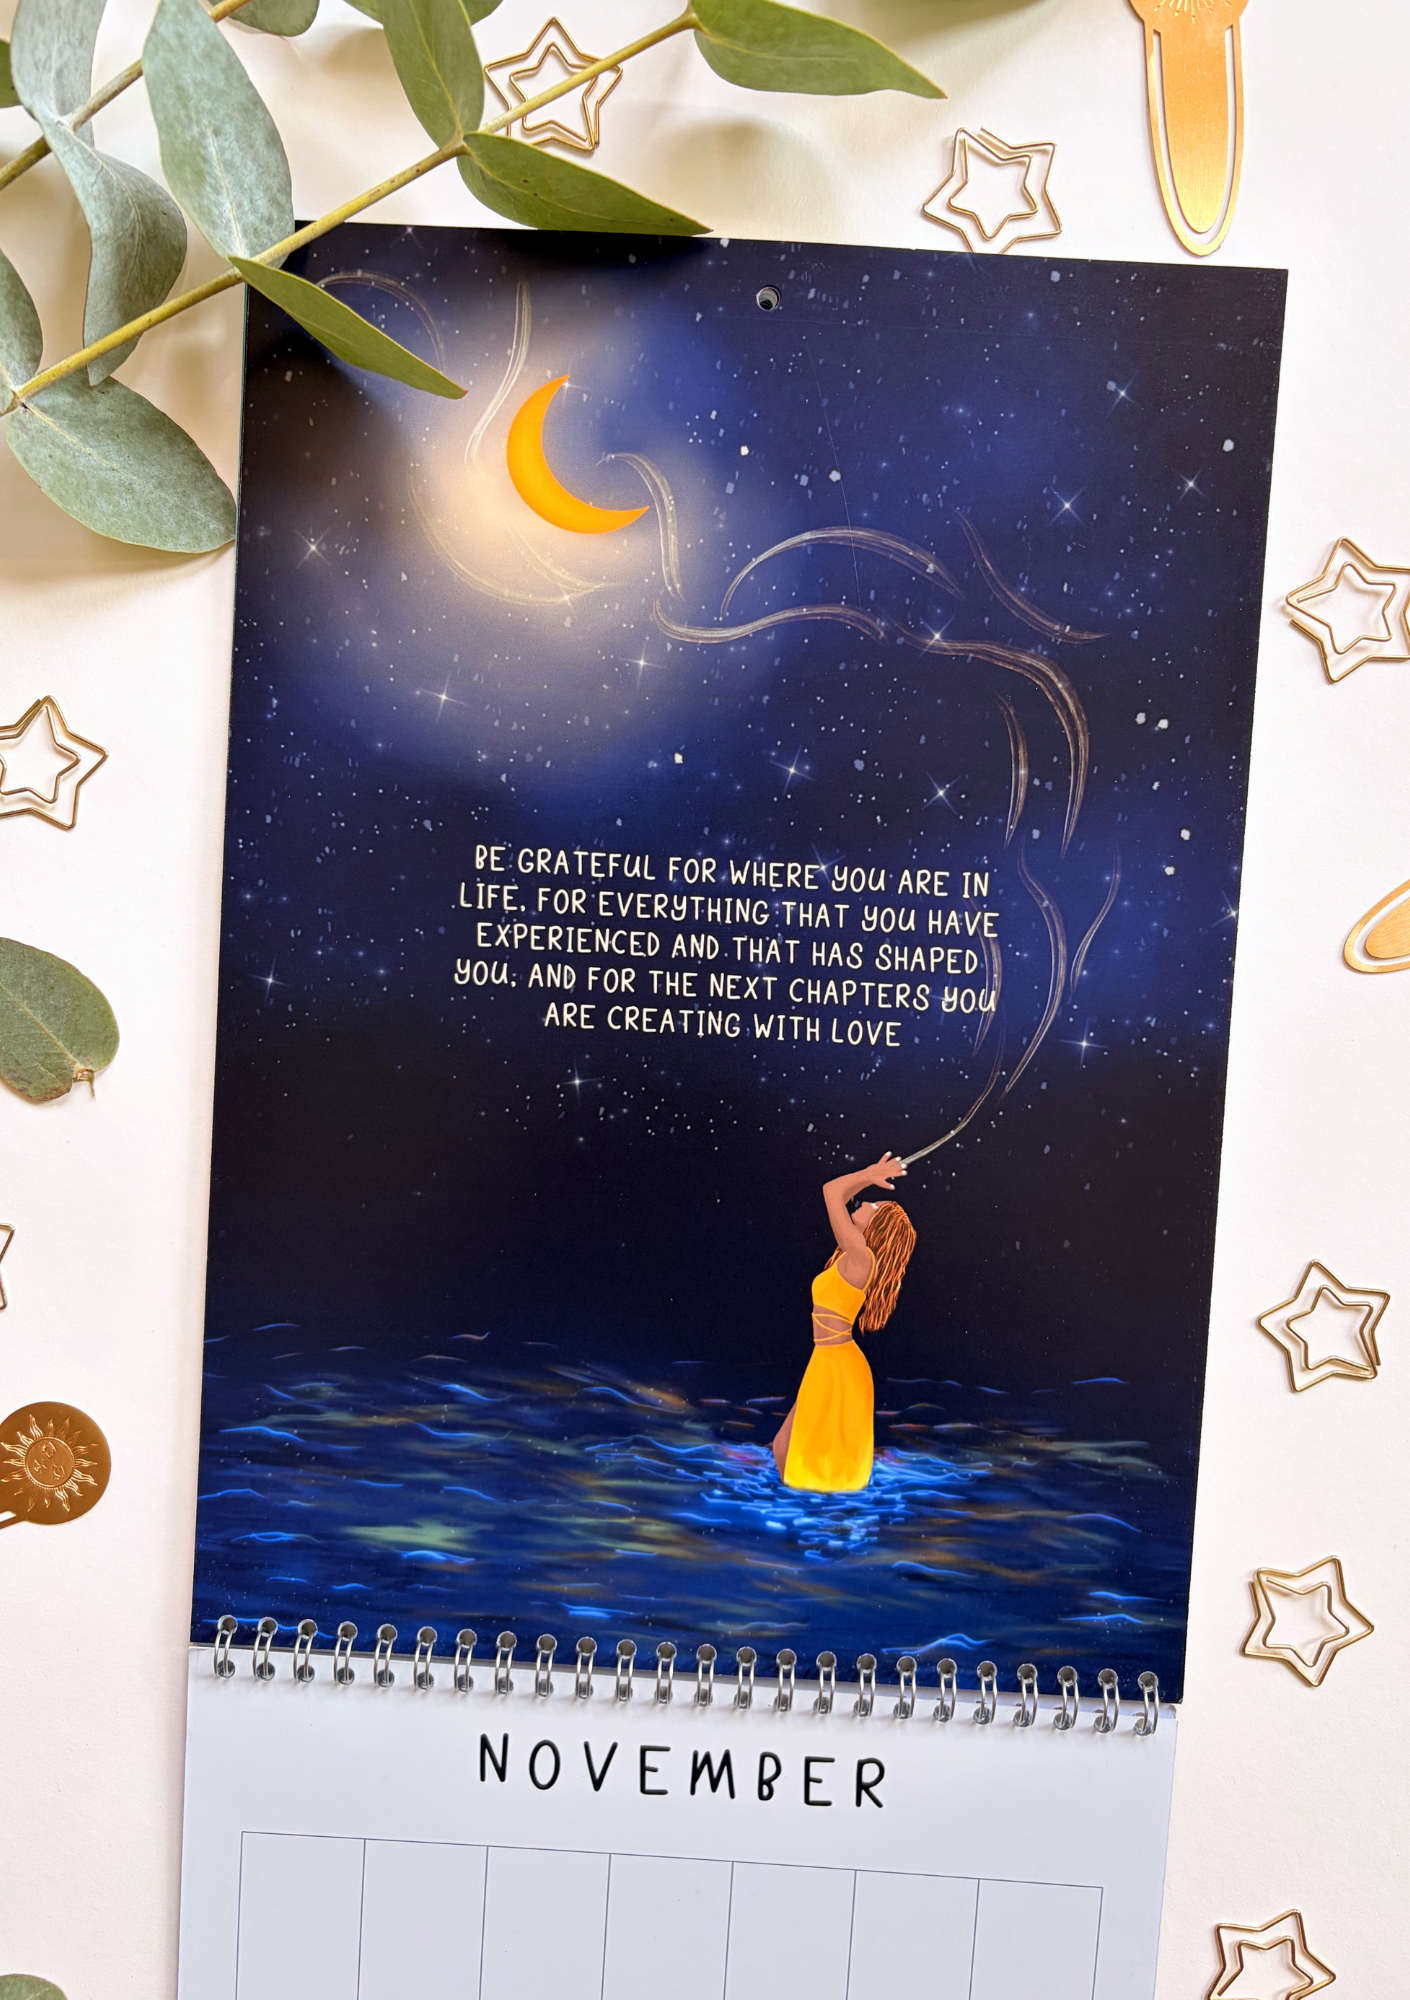 BE GRATEFUL FOR WHERE YOU ARE IN
LIFE, FOR EVERYTHING THAT YOU HAVE
EXPERIENCED AND THAT HAS SHAPED
YOU, AND FOR THE NEXT CHAPTERS YOU
ARE CREATING WITH LOVE
NOVEMBER